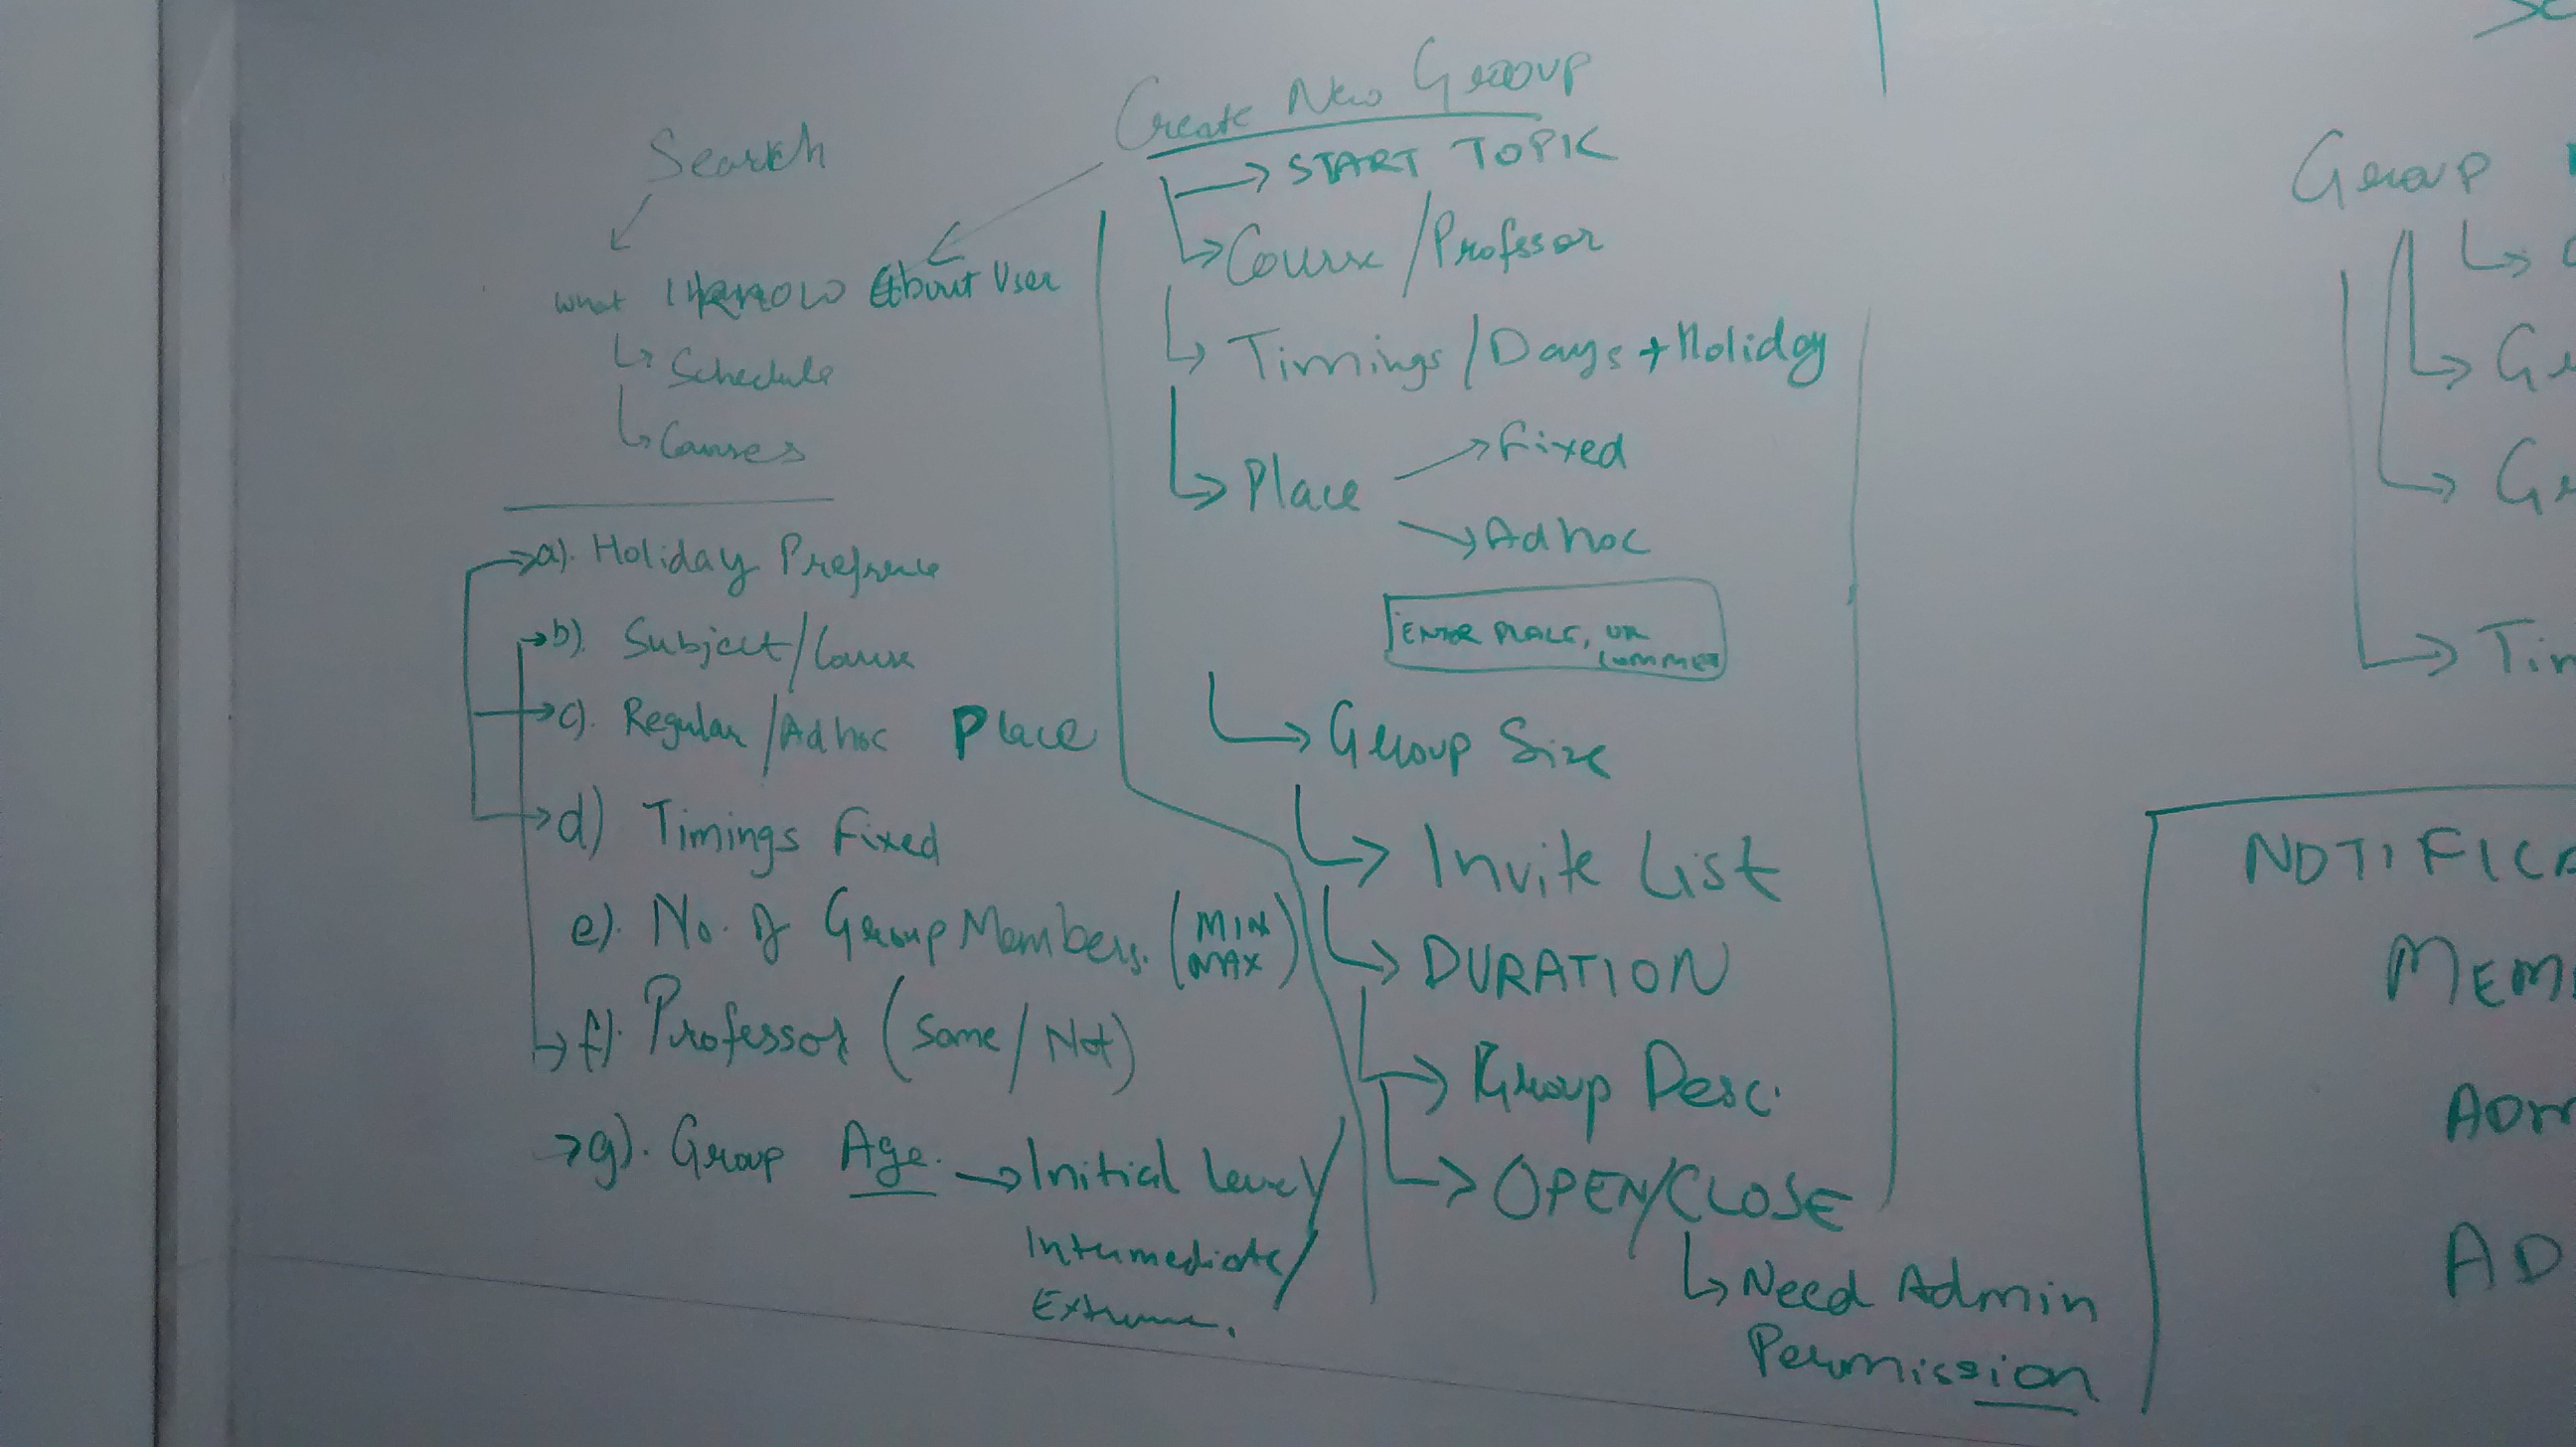 Search
What I KNOW About User
Schedule
Courses
a). Holiday Prefrence
b). Subject/Course
c). Regular/Adhoc Place
d) Timings Fixed
e). No. of Group Members. (MIN MAX)
f). Professor (Same/Not)
g). Group Age. Initial Level/
Intermediate/
Extreme.
Create New Group
START TOPIC
Course/Professor
Timings/Days + Holiday
Place
Fixed
Adhoc
ENTER PLACE, OR
Group Size
Invite List
DURATION
Group Desc.
OPEN/CLOSE
Need Admin
Permission
Group
Tim
NOTIFICA
MEM
ADM
AD